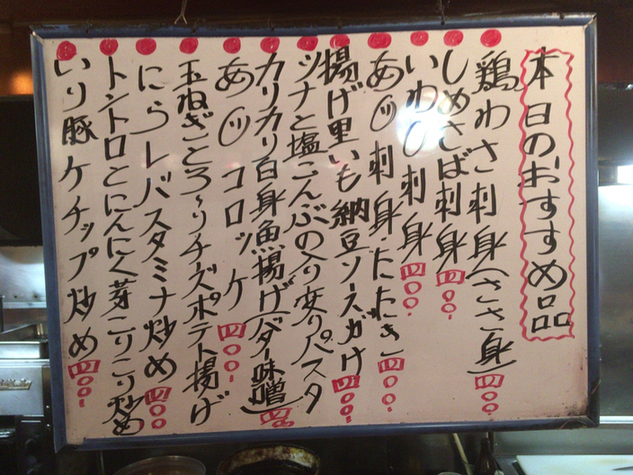 本日のおすすめ品
鶏わさ刺身(ささ身)四〇〇-
しめさば刺身四〇〇-
いわし刺身四〇〇-
あじ刺身・たたき四〇〇-
揚げ里いも納豆ソースがけ四〇〇-
ツナと塩こんぶの入り変りパスタ
カリカリ白身魚揚げ(バター味噌)四〇〇-
あじコロッケ四〇〇-
玉ねぎとろ〜りチーズポテト揚げ
にらレバスタミナ炒め四〇〇
トントロとにんにく芽こりこり炒め
いり豚ケチャップ炒め四〇〇-